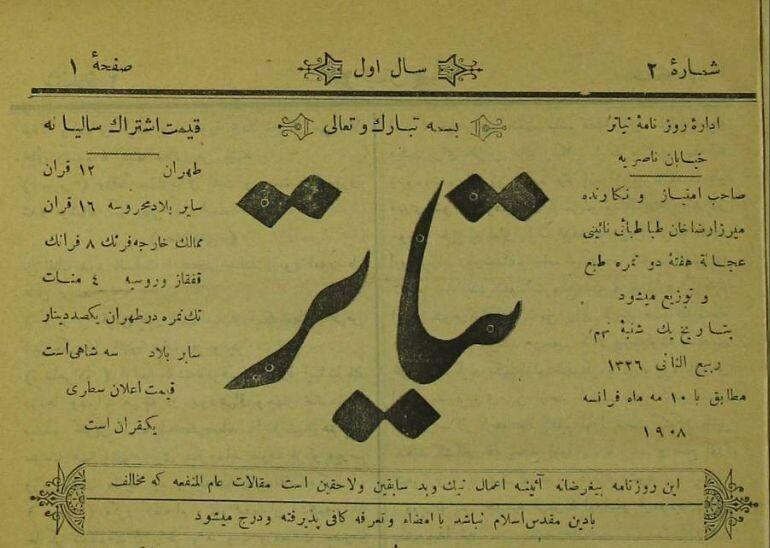 شمارهٔ ۲
سال اول
صفحهٔ ۱
ادارهٔ روزنامهٔ تیاتر
خیابان ناصریه
صاحب امتیاز و نگارنده
میرزا رضاخان طباطبائی نائینی
عجالة هفتهٔ دو نمره طبع
و توزیع میشود
بتاریخ یك شنبهٔ نهم
ربیع الثانی ۱۳۲۶
مطابق با ۱۰ مه ماه فرانسه
۱۹۰۸
بسمه تبارك و تعالی
تیاتر
قیمت اشتراك سالیانه
طهران ۱۲ قران
سایر بلاد محروسه ۱۶ قران
ممالك خارجه فرنك ۸ فرانك
قفقاز وروسیه ۴ منات
تك نمره در طهران یکصد دینار
سایر بلاد سه شاهی است
قیمت اعلان سطری
یکقران است
این روزنامه بیغرضانه آئینه اعمال نیك و بد سابقین ولاحقین است مقالات عام المنفعه که مخالف
بادین مقدس اسلام نباشد با امضاء و تمرفه کافی پذیرفته و درج میشود